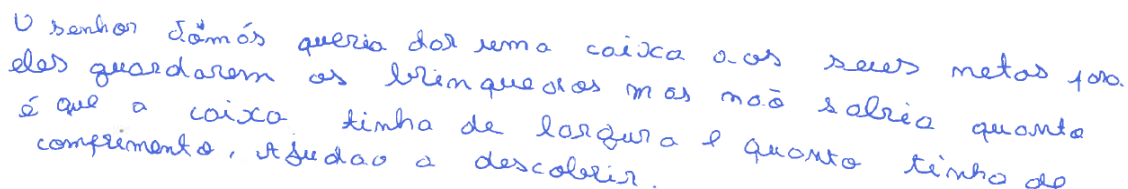 O senhor Jâmós queria dar uma caixa a os seus netos para
eles guardarem os brinquedos mas naõ sabia quanto
é que a caixa tinha de largura e quanto tinha de
comprimento. Ajudao a descobrir.